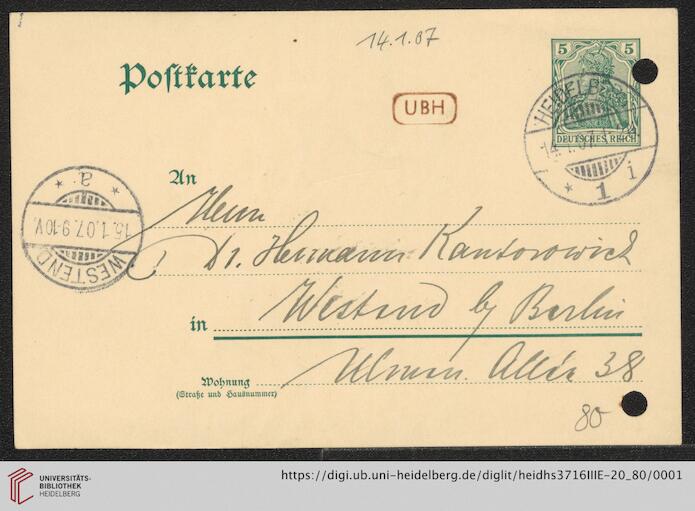 14.1.07
5 5
Postkarte
UBH
HEIDELB
DEUTSCHES REICH
14.1.07
* 1 i
* a. *
15.1.07.9-10V.
WESTEND
An
Herrn
Dr. Hermann Kantorowicz
Westend by Berlin
in
Ulmen Allée 38
Wohnung
(Straße und Hausnummer)
80
UNIVERSITÄTS-
BIBLIOTHEK
HEIDELBERG
https://digi.ub.uni-heidelberg.de/diglit/heidhs3716IIIE-20_80/0001